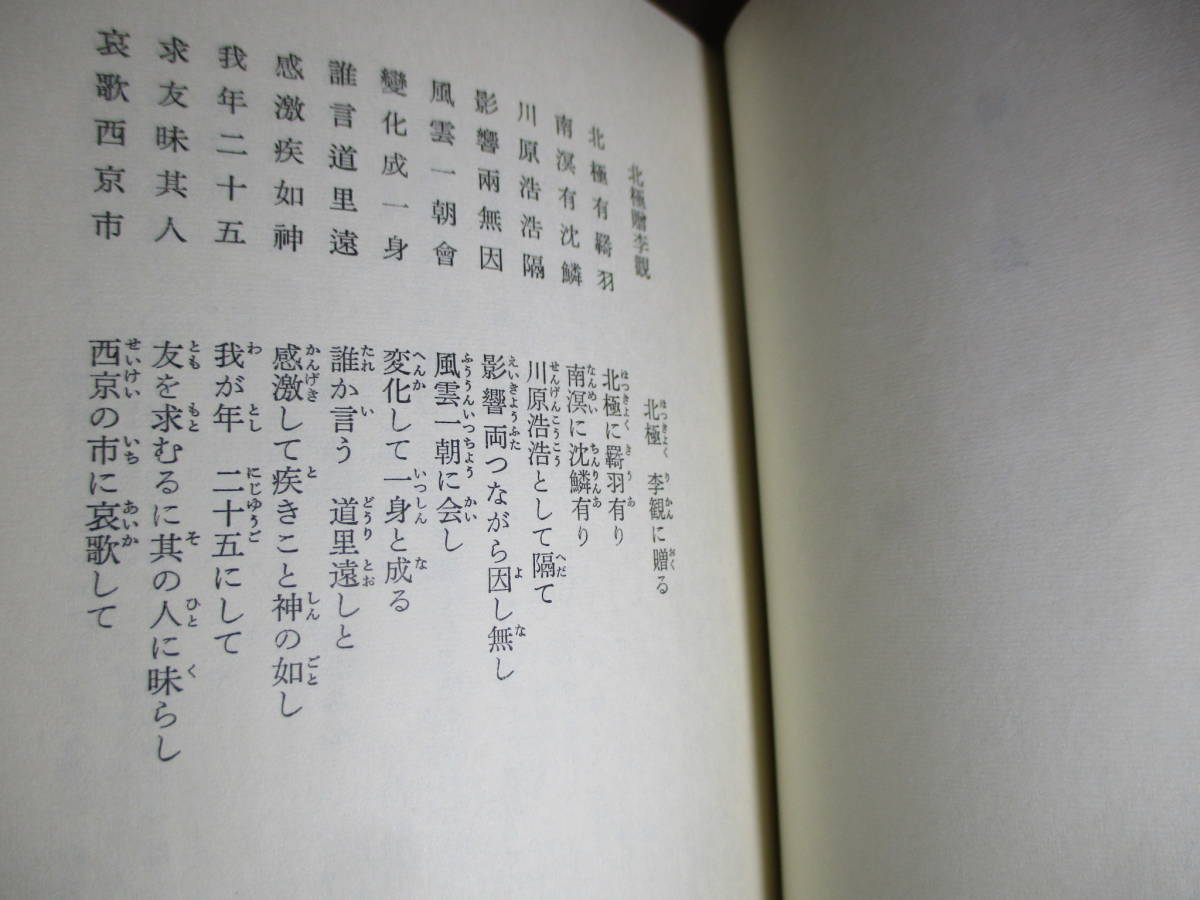 北極贈李觀
北極有羇羽
南溟有沈鱗
川原浩浩隔
影響兩無因
風雲一朝會
變化成一身
誰言道里遠
感激疾如神
我年二十五
求友昧其人
哀歌西京市
北極　李観に贈る
北極に羇羽有り
南溟に沈鱗有り
川原浩浩として隔て
影響両つながら因し無し
風雲一朝に会し
変化して一身と成る
誰か言う　道里遠しと
感激して疾きこと神の如し
我が年　二十五にして
友を求むるに其の人に昧らし
西京の市に哀歌して